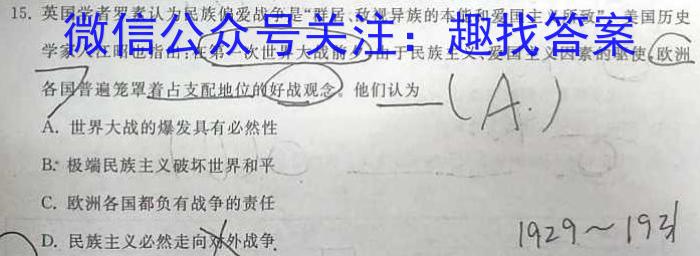 15. 英国学者罗素认为民族偏爱战争是“群居、敌视异族的本能和爱国主义所致”。美国历史
微信公众号关注：趣找答案
学家 也指出：在第一次世界大战前夕，由于民族主义、爱国主义因素的驱使，欧洲
各国普遍笼罩着占支配地位的好战观念。他们认为
(A.)
A. 世界大战的爆发具有必然性
B. 极端民族主义破坏世界和平
C. 欧洲各国都负有战争的责任
D. 民族主义必然走向对外战争
1929～193